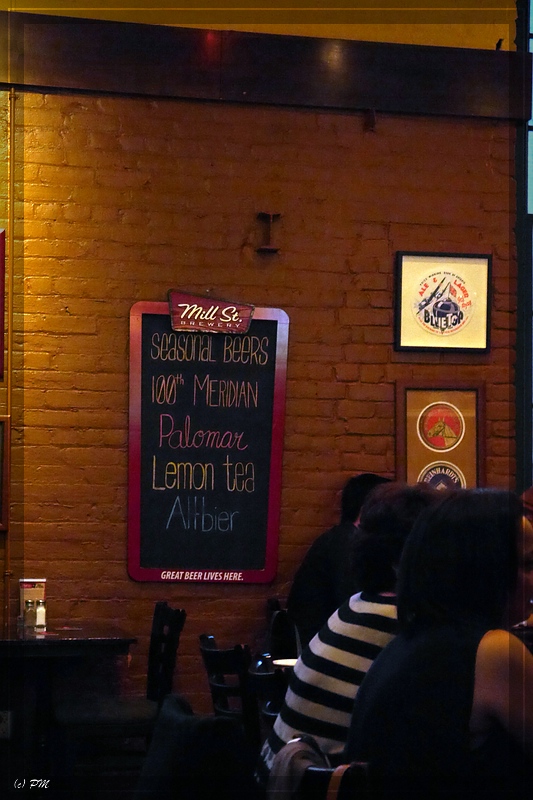 Mill St.
BREWERY
SEASONAL BEERS
100th MERIDIAN
Palomar
Lemon tea
Altbier
GREAT BEER LIVES HERE.
ALE & LAGER
(c) PM